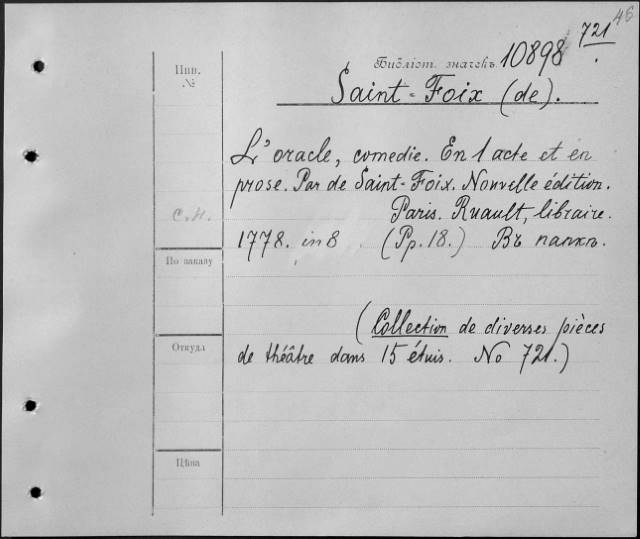 46
721
Библіот. значекъ 10898
Инв.
№
Saint-Foix (de).
L'oracle, comedie. En 1 acte et en
prose. Par de Saint-Foix. Nouvelle édition.
Paris. Ruault, libraire.
С.Н.
1778. in 8 (Pp. 18.) Въ папкъ.
По заказу
(Collection de diverses pièces
Откуда
de théâtre dans 15 étuis. No 721.)
Цѣна